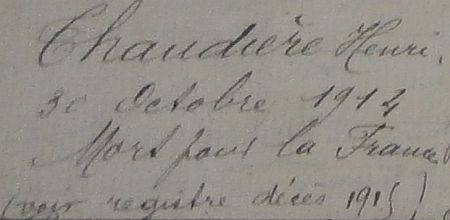 Chaudière Henri.
30 Octobre 1914
Mort pour la France
(voir registre décès 1915)